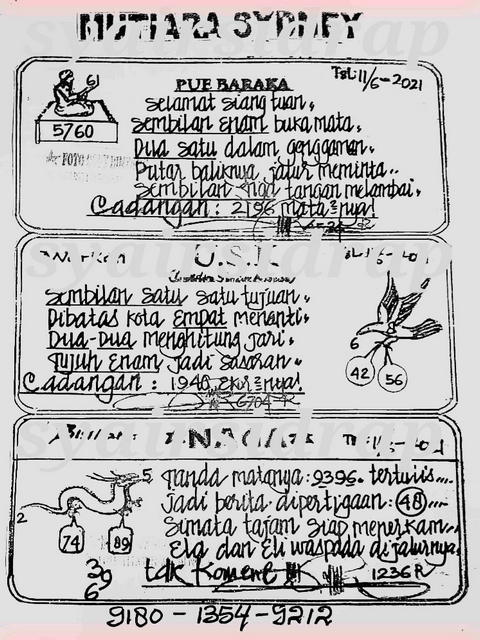 MUTIARA SYDNEY
syairsidrap
PUE BARAKA
Tgl: 11/6-2021
61
5760
Selamat siang tuan.
Sembilan enam buka mata.
Dua satu dalam genggaman.
Putar baliknya, jalur meminta..
Sembilan tangan melambai.
Cadangan: 2196 mata nya!
syairsidrap
U.S.K
Sembilan satu satu tujuan.
Dibatas kota empat menanti.
Dua-Dua menghitung jari.
Tujuh enam jadi sasaran.
Cadangan: 1946 Ekor nya!
6704 - R
6
42
56
syairsidrap
NAGA
Tanda matanya: 9396. tertulis....
Jadi berita dipertigaan: 48....
Simata tajam siap menerkam...
Ela dan Eli waspada di jalurnya.
tdk Koment
1236 R
5
2
74
89
39
6
9180 - 1354 - 9212